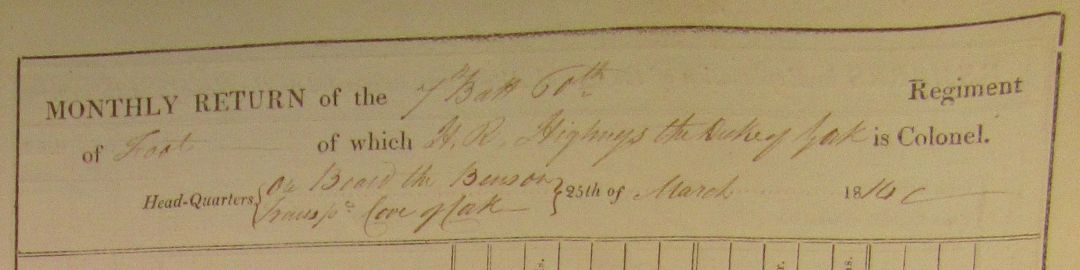 MONTHLY RETURN of the 7th Batt 60th Regiment
of Foot of which H. R. Highness the Duke of York is Colonel.
Head-Quarters { On Board the Benson } 25th of March 1814
Transpt Cove of Cork